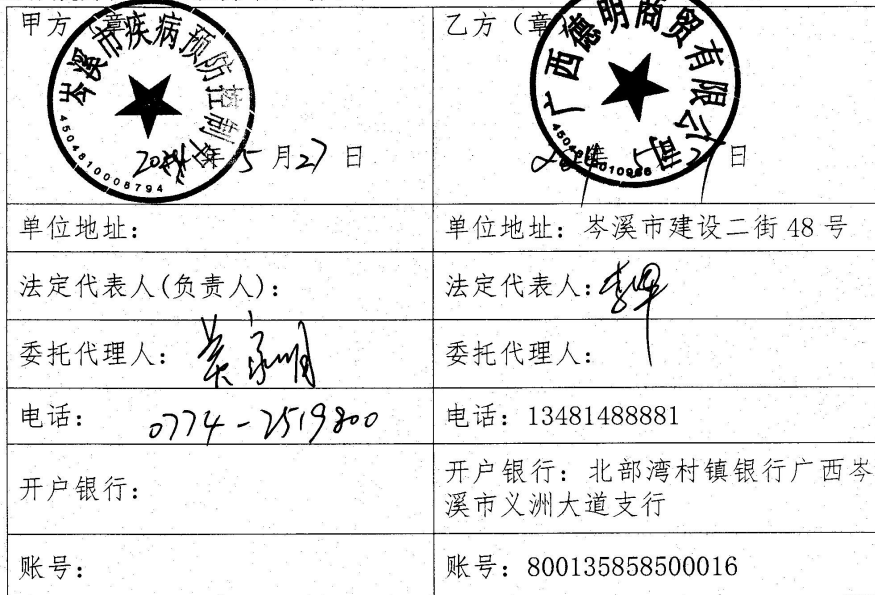 甲方（章）
岑溪市疾病预防控制中心
4504810008794
2024年5月27日
乙方（章）
广西德明商贸有限公司
2024年5月27日
单位地址：
单位地址：岑溪市建设二街48号
法定代表人(负责人)：
法定代表人：
委托代理人：
委托代理人：
电话：0774-2519800
电话：13481488881
开户银行：
开户银行：北部湾村镇银行广西岑
溪市义洲大道支行
账号：
账号：800135858500016